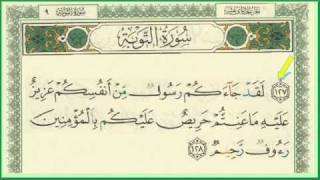 سُورَةُ التَّوْبَةِ
٩
١٢٧ لَقَدْ جَاءَكُمْ رَسُولٌ مِّنْ أَنفُسِكُمْ عَزِيزٌ
عَلَيْهِ مَا عَنِتُّمْ حَرِيصٌ عَلَيْكُم بِالْمُؤْمِنِينَ
رَءُوفٌ رَّحِيمٌ ١٢٨